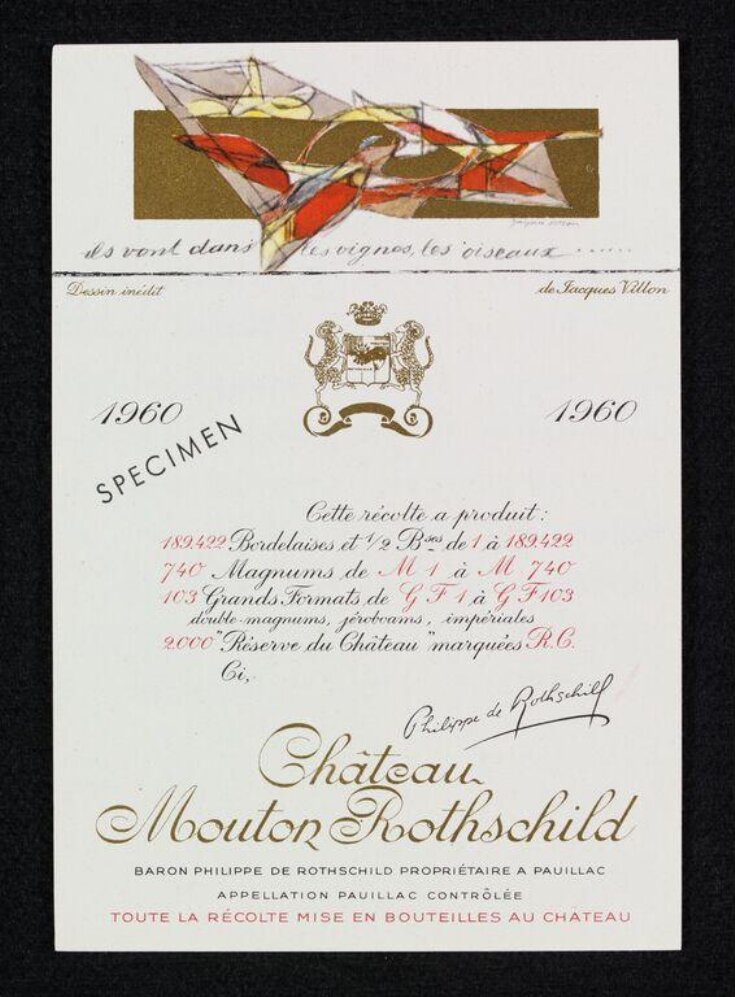 ils vont dans les vignes, les oiseaux ......
Dessin inédit
de Jacques Villon
1960
1960
SPECIMEN
Cette récolte a produit :
189.422 Bordelaises et 1/2 Bses de 1 à 189.422
740 Magnums de M 1 à M 740
103 Grands Formats de G F 1 à G F 103
double-magnums, jéroboams, impériales
2.000 "Réserve du Château" marquées R.C.
Ci,
Philippe de Rothschild
Château
Mouton Rothschild
BARON PHILIPPE DE ROTHSCHILD PROPRIÉTAIRE A PAUILLAC
APPELLATION PAUILLAC CONTRÔLÉE
TOUTE LA RÉCOLTE MISE EN BOUTEILLES AU CHÂTEAU